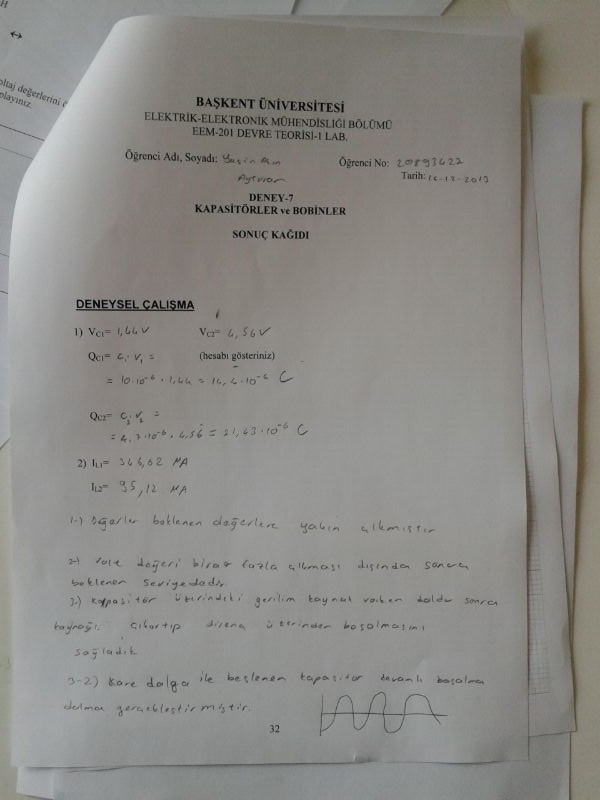 H
↔
oltaj değerlerini
playınız.
BAŞKENT ÜNİVERSİTESİ
ELEKTRİK-ELEKTRONİK MÜHENDİSLİĞİ BÖLÜMÜ
EEM-201 DEVRE TEORİSİ-1 LAB.
Öğrenci Adı, Soyadı: Yasin
Öğrenci No: 20893422
Tarih: 16-12-2013
DENEY-7
KAPASİTÖRLER ve BOBİNLER
SONUÇ KAĞIDI
DENEYSEL ÇALIŞMA
1) VC1= 1,44V VC2= 4,56V
QC1= C1.V1 = (hesabı gösteriniz)
= 10.10⁻⁶ . 1,44 = 14,4.10⁻⁶ C
QC2= C2.V2 =
= 4,7.10⁻⁶ . 4,56 = 21,43.10⁻⁶ C
2) IL1= 346,62 MA
IL2= 95,12 MA
1-) Değerler beklenen değerlere yakın çıkmıştır
2-) değeri biraz fazla çıkması dışında sonuç
beklenen seviyededir.
3-) Kapasitör üzerindeki gerilim kaynak varken doldu sonra
kaynağı çıkartıp direnç üzerinden boşalmasını
sağladık
3-2) Kare dalga ile beslenen kapasitör devamlı boşalma
dolma gerçekleştirmiştir.
32